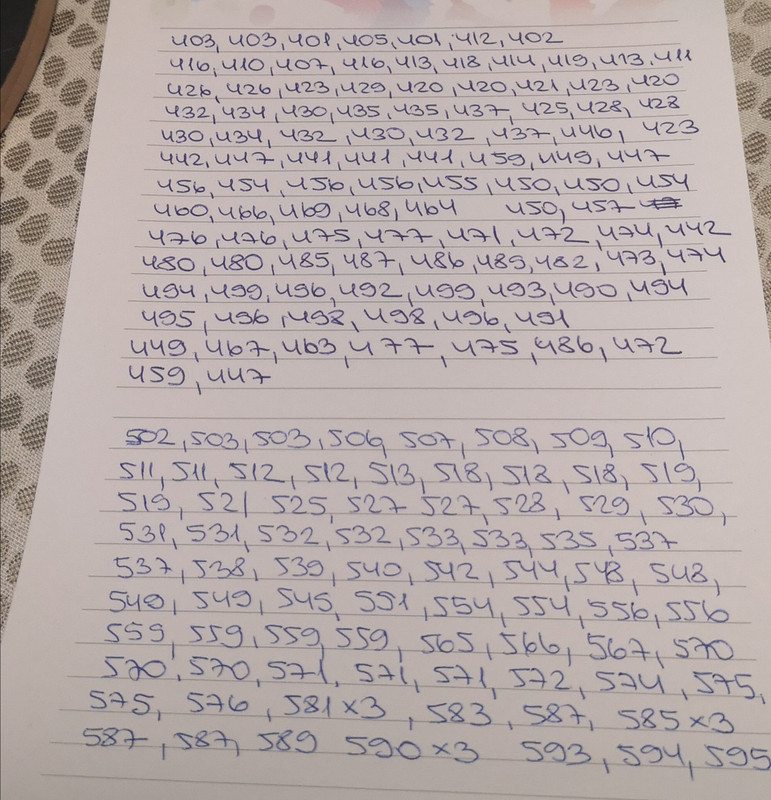 403, 403, 401, 405, 401, 412, 402
416, 410, 407, 416, 413, 418, 414, 419, 413, 411
426, 426, 423, 429, 420, 420, 421, 423, 420
432, 434, 430, 435, 435, 437, 425, 428, 428
430, 434, 432, 430, 432, 437, 446, 423
442, 447, 441, 441, 441, 459, 449, 447
456, 454, 456, 456, 455, 450, 450, 454
460, 466, 469, 468, 464 450, 457
476, 476, 475, 477, 471, 472, 474, 442
480, 480, 485, 487, 486, 489, 482, 473, 474
494, 499, 496, 492, 499, 493, 490, 494
495, 496, 498, 498, 496, 491
449, 467, 463, 477, 475, 486, 472
459, 447
502, 503, 503, 506, 507, 508, 509, 510,
511, 511, 512, 512, 513, 518, 518, 518, 519,
519, 521 525, 527 527, 528, 529, 530,
531, 531, 532, 532, 533, 533, 535, 537
537, 538, 539, 540, 542, 544, 548, 548,
549, 549, 545, 551, 554, 554, 556, 556
559, 559, 559, 559, 565, 566, 567, 570
570, 570, 571, 571, 571, 572, 574, 575,
575, 576, 581 x3, 583, 587, 585 x3
587, 587, 589 590 x3 593, 594, 595